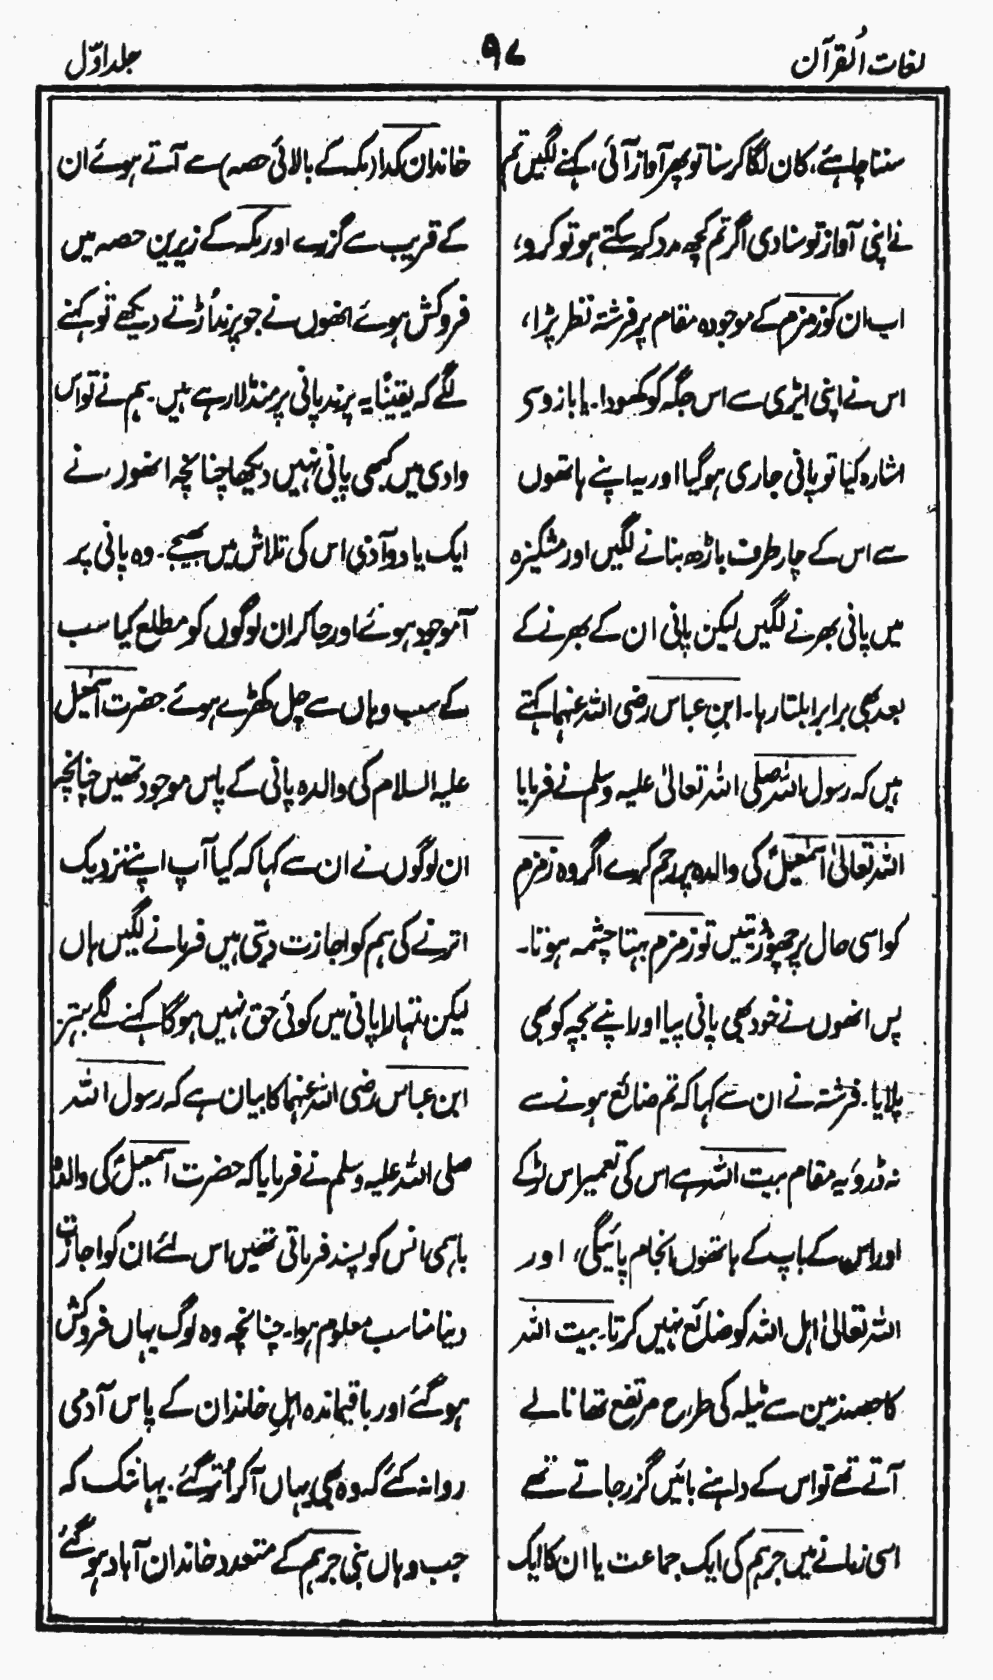 لغات القرآن
۹۷
جلد اوّل
سننا چاہئے، کان لگا کر سنا تو پھر آواز آئی، کہنے لگیں تم
نے اپنی آواز تو سنا دی اگر تم کچھ مدد کر سکتے ہو تو کرو،
اب ان کو زمزم کے موجودہ مقام پر فرشتہ نظر پڑا،
اس نے اپنی ایڑی سے اس جگہ کو کھودا۔ یا بازو سے
اشارہ کیا تو پانی جاری ہو گیا اور یہ اپنے ہاتھوں
سے اس کے چار طرف باڑھ بنانے لگیں اور مشکیزہ
میں پانی بھرنے لگیں لیکن پانی ان کے بھرنے کے
بعد بھی برابر ابلتا رہا۔ ابن عباس رضی اللہ عنہما کہتے
ہیں کہ رسول اللہ صلی اللہ تعالیٰ علیہ وسلم نے فرمایا
اللہ تعالیٰ اسمٰعیلؑ کی والدہ پر رحم کرے اگر وہ زمزم
کو اسی حال پر چھوڑ دیتیں تو زمزم بہتا چشمہ ہوتا۔
پس انھوں نے خود بھی پانی پیا اور اپنے بچہ کو بھی
پلایا۔ فرشتہ نے ان سے کہا کہ تم ضائع ہونے سے
نہ ڈرو یہ مقام بیت اللہ ہے اس کی تعمیر اس لڑکے
اور اس کے باپ کے ہاتھوں انجام پائیگی، اور
اللہ تعالیٰ اہل اللہ کو ضائع نہیں کرتا۔ بیت اللہ
کا حصہ زمین سے ٹیلہ کی طرح مرتفع تھا نالے
آتے تھے تو اس کے داہنے بائیں گزر جاتے تھے
اسی زمانے میں جرہم کی ایک جماعت یا ان کا ایک
خاندان کدا (مکہ کے بالائی حصہ) سے آتے ہوئے ان
کے قریب سے گزرے اور مکہ کے زیرین حصہ میں
فروکش ہوئے انھوں نے جو پرند اُڑتے دیکھے تو کہنے
لگے کہ یقینًا یہ پرند پانی پر منڈلا رہے ہیں۔ ہم نے تو اس
وادی میں کبھی پانی نہیں دیکھا چنانچہ انھوں نے
ایک یا دو آدمی اس کی تلاش میں بھیجے۔ وہ پانی پر
آموجود ہوئے اور جا کر ان لوگوں کو مطلع کیا سب
کے سب وہاں سے چل کھڑے ہوئے حضرت اسمٰعیل
علیہ السلام کی والدہ پانی کے پاس موجود تھیں چنانچہ
ان لوگوں نے ان سے کہا کہ کیا آپ اپنے نزدیک
اترنے کی ہم کو اجازت دیتی ہیں فرمانے لگیں ہاں
لیکن تمہارا پانی میں کوئی حق نہیں ہوگا کہنے لگے بہتر۔
ابن عباس رضی اللہ عنہما کا بیان ہے کہ رسول اللہ
صلی اللہ علیہ وسلم نے فرمایا کہ حضرت اسمٰعیلؑ کی والدہ
باہمی انس کو پسند فرماتی تھیں اس لئے ان کو اجازت
دینا مناسب معلوم ہوا۔ چنانچہ وہ لوگ یہاں فروکش
ہو گئے اور باقیماندہ اہلِ خاندان کے پاس آدمی
روانہ کئے کہ وہ بھی یہاں آ کر اُتر گئے۔ یہانتک کہ
جب وہاں بنی جرہم کے متعدد خاندان آباد ہو گئے